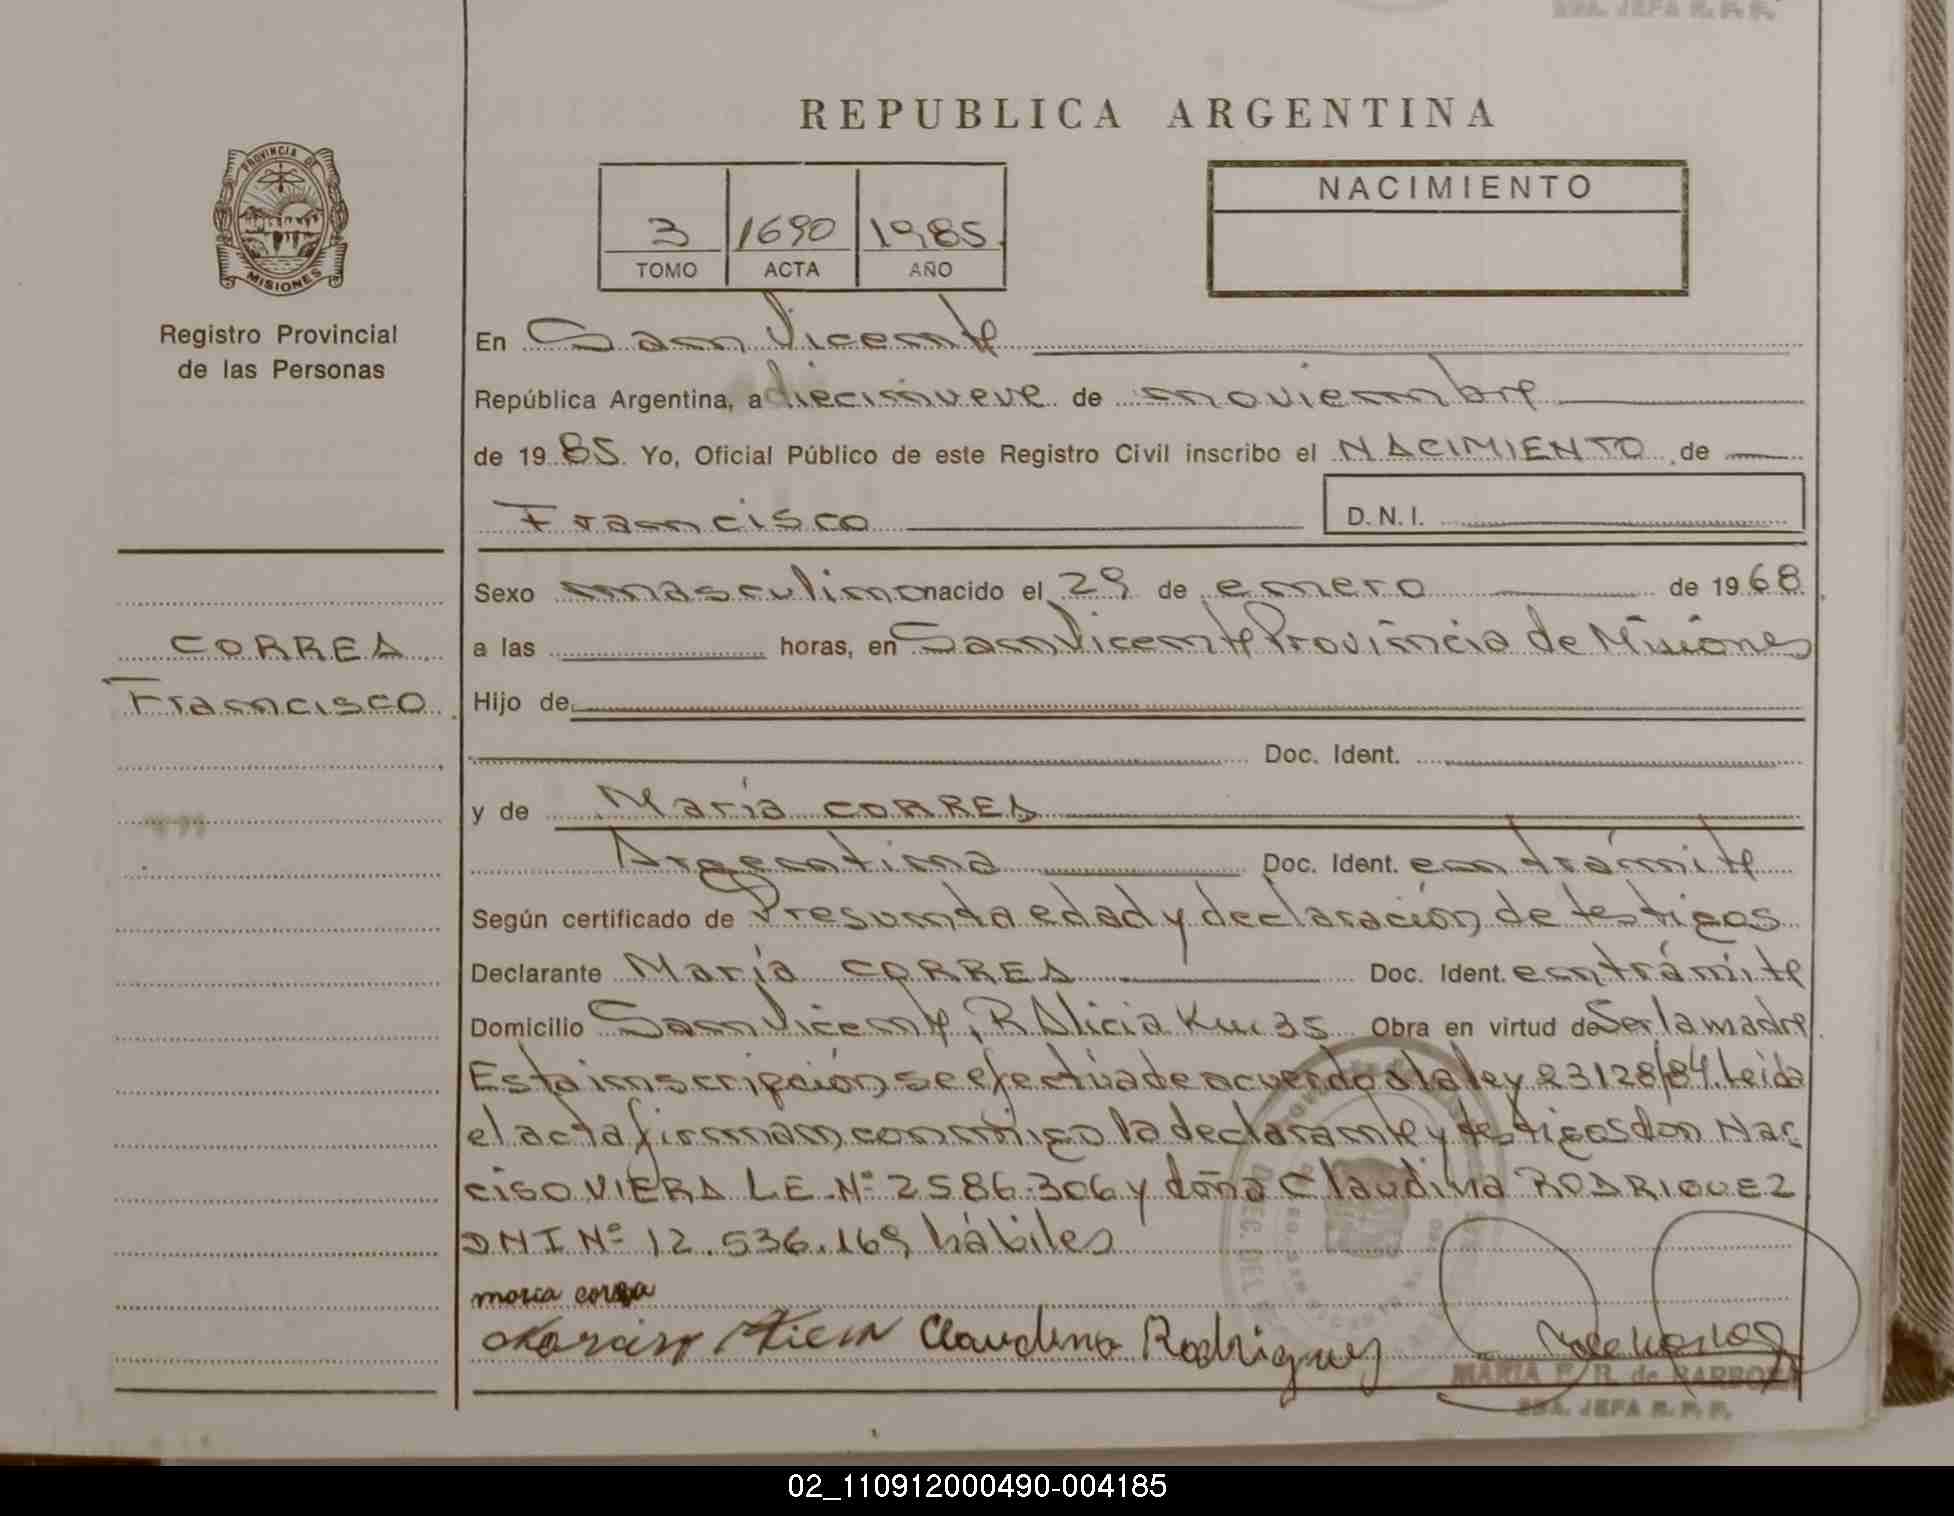 SDA. JEFA R. P. P.
REPUBLICA ARGENTINA
PROVINCIA DE
MISIONES
Registro Provincial
de las Personas
3 1690 1985
TOMO ACTA AÑO
NACIMIENTO
En San Vicente
República Argentina, a diecinueve de noviembre
de 1985 Yo, Oficial Público de este Registro Civil inscribo el NACIMIENTO de
Francisco D.N.I.
Sexo masculino nacido el 29 de enero de 1968
CORREA
Francisco
a las horas, en San Vicente Provincia de Misiones
Hijo de
Doc. Ident.
y de María CORREA
Argentina Doc. Ident. en trámite
Según certificado de Presunta edad y declaración de testigos
Declarante María CORREA Doc. Ident. en trámite
Domicilio San Vicente, P. Alicia Km 35 Obra en virtud de Ser la madre
Esta inscripción se efectúa de acuerdo a la ley 23128/84. Leida
el acta firman conmigo la declarante y testigos don Nar
ciso VIERA L.E. Nº 2586.306 y doña Claudina RODRIGUEZ
DNI Nº 12.536.169 hábiles
maria correa
Narciso Viera Claudina Rodriguez
MARIA E. R. de BARBOZA
SDA. JEFA R. P. P.
02_110912000490-004185